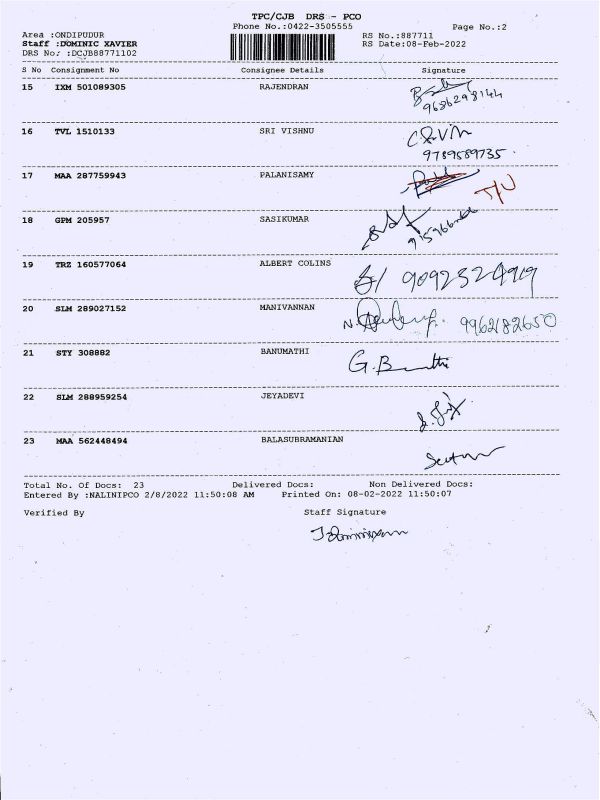 TPC/CJB DRS - PCO
Phone No.:0422-3505555
Page No.:2
Area :ONDIPUDUR
RS No.:887711
Staff :DOMINIC XAVIER
RS Date:08-Feb-2022
DRS No.: :DCJB88771102
S No Consignment No Consignee Details Signature
15 IXM 501089305 RAJENDRAN
9686298144
16 TVL 1510133 SRI VISHNU
9789589735.
17 MAA 287759943 PALANISAMY
18 GPM 205957 SASIKUMAR
19 TRZ 160577064 ALBERT COLINS
20 SLM 289027152 MANIVANNAN
9962182650
21 STY 308882 BANUMATHI
22 SLM 288959254 JEYADEVI
23 MAA 562448494 BALASUBRAMANIAN
Total No. Of Docs: 23 Delivered Docs: Non Delivered Docs:
Entered By :NALINIPCO 2/8/2022 11:50:08 AM Printed On: 08-02-2022 11:50:07
Verified By Staff Signature